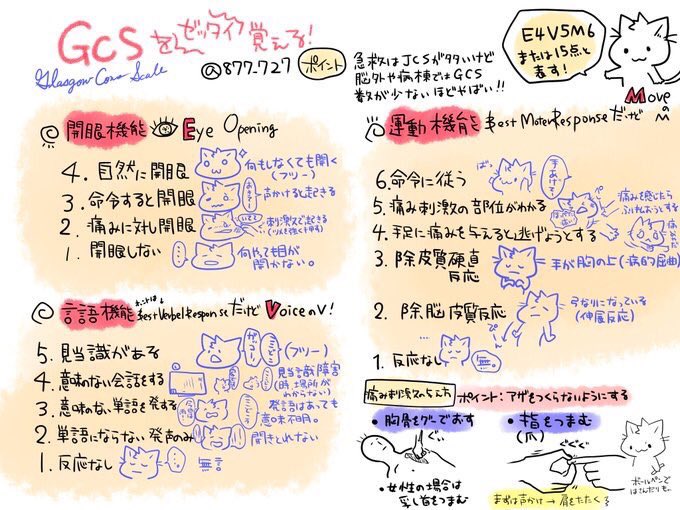 GCSをゼッタイ覚える!
Glasgow Coma Scale
@877_727
ポイント
急救はJCSがタタいけど
脳外や病棟ではGCS
数が少ないほどやばい!!
E4V5M6
または15点と
表す!
開眼機能 Eye Opening
4. 自然に開眼
何もしなくても開く
(フリー)
3. 命令すると開眼
おきてー
声かけると起きる
2. 痛みに対し開眼
いてて
刺激で起きる
1. 開眼しない
…
何やっても目が
開かない。
言語機能 ホントは Best Verbal Responseだけど VoiceのV!
5. 見当識がある
(フリー)
4. 意味のない会話をする
見当識障害
(時、場所が
わからない)
3. 意味のない単語を発する
発語はあっても
意味不明。
2. 単語にならない発声のみ
聞きとれない
1. 反応なし
…
無言
運動機能 Best Moter Responseだけど MoveのM
6. 命令に従う
ばっ
手あげて
5. 痛み刺激の部位がわかる
痛みを感じたら
4. 手足に痛みを与えると逃げようとする
3. 除皮質硬直
反応
手が胸の上(病的屈曲)
2. 除脳皮質反応
弓なりになっている
(伸展反応)
ぴーん
1. 反応なし
無。
痛み刺激の与え方
ポイント:アザをつくらないようにする
・胸骨をグーでおす
ぐぃ
・女性の場合は
乳し首をつまむ
・指をつまむ
(爪)
ぐぐぐ
ボールペンで
はさんだりも..
まずは声かけ→肩をたたくる